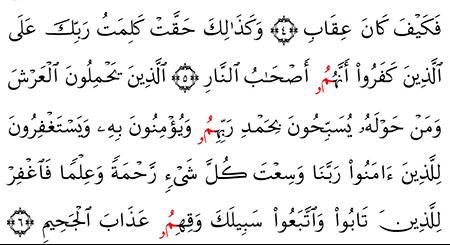 فَكَيْفَ كَانَ عِقَابِ ۝٤ وَكَذَٰلِكَ حَقَّتْ كَلِمَتُ رَبِّكَ عَلَى
الَّذِينَ كَفَرُوٓا۟ أَنَّهُمُۥٓ أَصْحَٰبُ النَّارِ ۝٥ الَّذِينَ يَحْمِلُونَ الْعَرْشَ
وَمَنْ حَوْلَهُۥ يُسَبِّحُونَ بِحَمْدِ رَبِّهِمُۥ وَيُؤْمِنُونَ بِهِۦ وَيَسْتَغْفِرُونَ
لِلَّذِينَ ءَامَنُوا۟ رَبَّنَا وَسِعْتَ كُلَّ شَىْءٍ رَّحْمَةً وَعِلْمًا فَاغْفِرْ
لِلَّذِينَ تَابُوا۟ وَاتَّبَعُوا۟ سَبِيلَكَ وَقِهِمُۥ عَذَابَ الْجَحِيمِ ۝٦